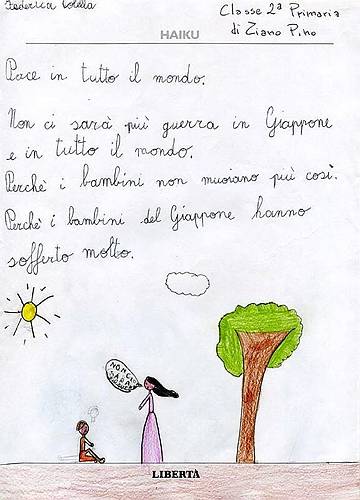 Federica
Classe 2ª Primaria
di Ziano P.no
HAIKU
Pace in tutto il mondo.
Non ci sarà più guerra in Giappone
e in tutto il mondo.
Perchè i bambini non muoiano più così.
Perchè i bambini del Giappone hanno
sofferto molto.
NON CI
SARÀ
LIBERTÀ